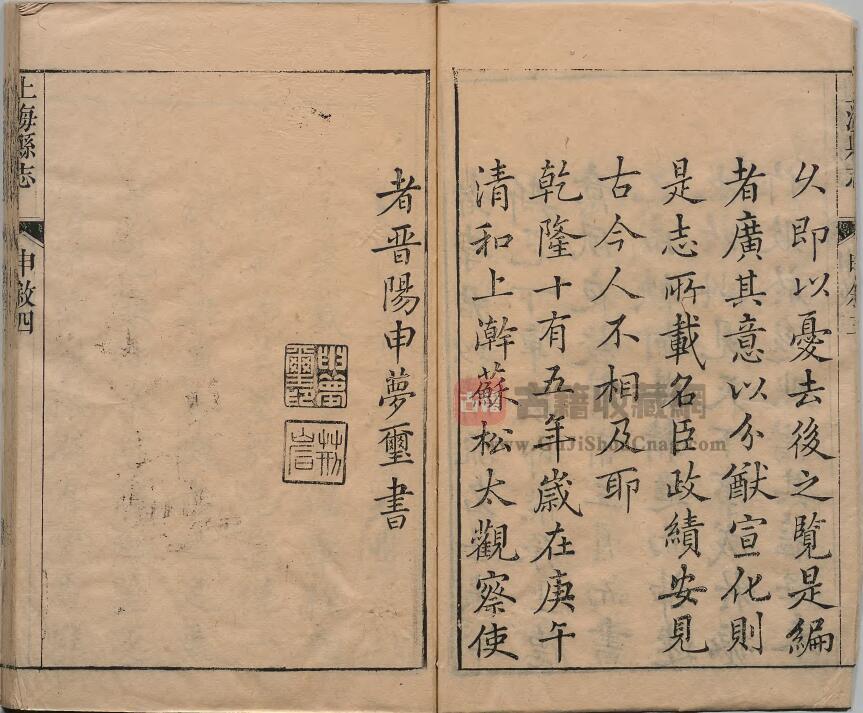 久即以憂去後之覽是編
者廣其意以分猷宣化則
是志所載名臣政績安見
古今人不相及耶
乾隆十有五年歲在庚午
清和上澣蘇松太觀察使
者晉陽申夢璽書
申夢
璽印
荊
岩
上海縣志
申敘四
古籍收藏網
www.GuJiShouCang.com